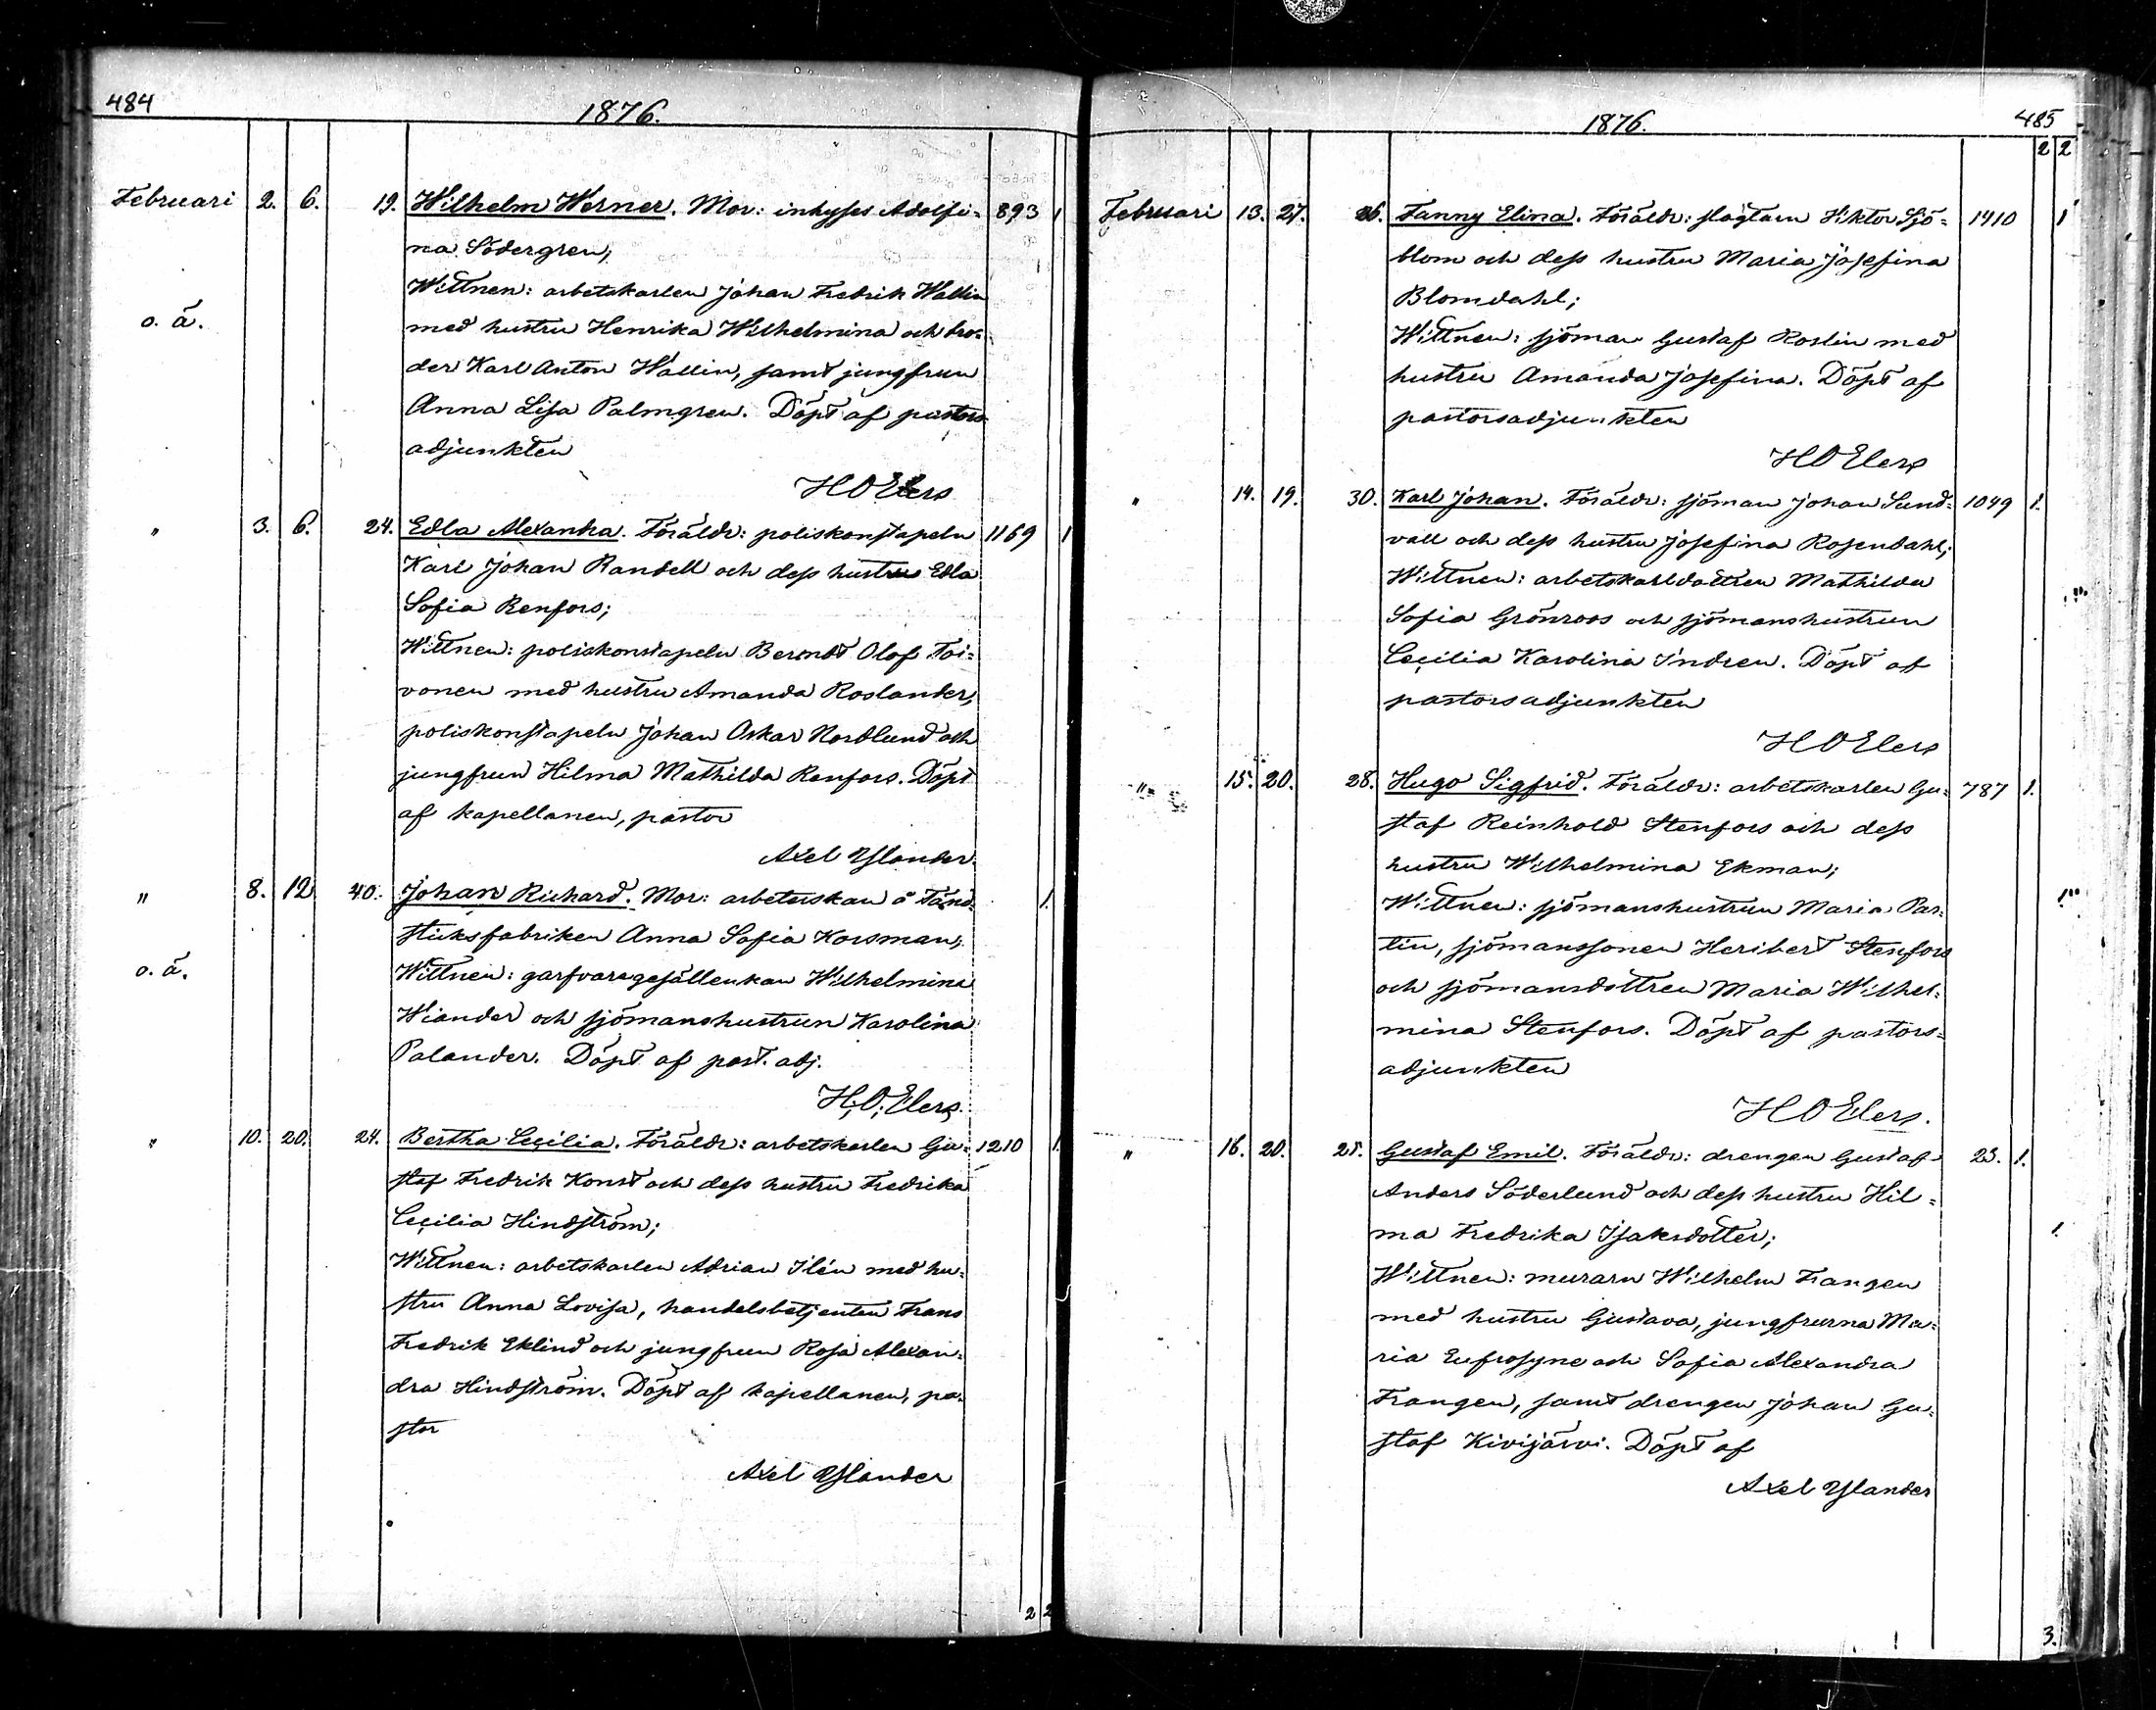 484
1876.
Februari 2. 6. 19. Wilhelm Werner. Mor: inhyses Adolfi- 893 1
na Södergren;
Wittnen: arbetskarlen Johan Fredrik Wallin
o. ä. med hustru Henrika Wilhelmina och bro-
der Karl Anton Wallin, samt jungfrun
Anna Lisa Palmgren. Döpt af pastors
adjunkten
H O Elers
" 3. 6. 24. Edla Alexandra. Föräldr: poliskonstapeln 1169 1
Karl Johan Randell och dess hustru Edla
Sofia Renfors;
Wittnen: poliskonstapeln Berndt Olof Toi-
vonen med hustru Amanda Roslander,
poliskonstapeln Johan Oskar Nordlund och
jungfrun Hilma Mathilda Renfors. Döpt
af kapellanen, pastor
Axel Ylander.
" 8. 12 40. Johan Richard. Mor: arbeterskan å Tänd- 1.
sticksfabriken Anna Sofia Korsman;
o. ä. Wittnen: garfvaregesällenkan Wilhelmina
Wiander och sjömanshustrun Karolina
Palander. Döpt af past. adj.
H. O. Elers.
" 10. 20. 24. Bertha Cecilia. Föräldr: arbetskarlen Gu- 1210 1.
staf Fredrik Konst och dess hustru Fredrika
Cecilia Hindström;
Wittnen: arbetskarlen Adrian Ilén med hu-
stru Anna Lovisa, handelsbetjenten Frans
Fredrik Eklind och jungfrun Rosa Alexan-
dra Hindström. Döpt af kapellanen, pa-
stor
Axel Ylander
2 2
1876.
485
2 2
Februari 13. 27. 26. Fanny Elina. Föräldr: slagtarn Viktor Sjö- 1410 1
blom och dess hustru Maria Josefina
Blomdahl;
Wittnen: sjöman Gustaf Roslin med
hustru Amanda Josefina. Döpt af
pastorsadjunkten
H O Elers
" 14. 19. 30. Karl Johan. Föräldr: sjöman Johan Sund- 1049 1.
vall och dess hustru Josefina Rosendahl;
Wittnen: arbetskarldottren Mathilda
Sofia Grönroos och sjömanshustrun
Cecilia Karolina Indren. Döpt af
pastorsadjunkten
H O Elers
" 15. 20. 28. Hugo Sigfrid. Föräldr: arbetskarlen Gu- 787 1.
staf Reinhold Stenfors och dess
hustru Wilhelmina Ekman;
Wittnen: sjömanshustrun Maria Par-
tin, sjömanssonen Heribert Stenfors
och sjömansdottren Maria Wilhel-
mina Stenfors. Döpt af pastors-
adjunkten
H O Elers.
" 16. 20. 25. Gustaf Emil. Föräldr: drengen Gustaf 23. 1.
Anders Söderlund och dess hustru Hil-
ma Fredrika Isaksdotter;
Wittnen: murarn Wilhelm Frangen
med hustru Gustava, jungfrurna Ma-
ria Eufrosyne och Sofia Alexandra
Frangen, samt drengen Johan Gu-
staf Kivijärvi. Döpt af
Axel Ylander
3.